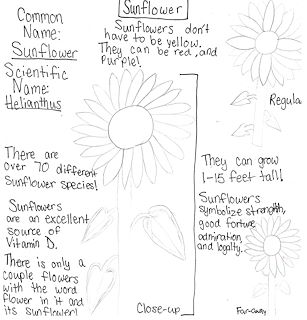 Sunflower
Common
Name:
Sunflower
Scientific
Name:
Helianthus
Sunflowers don't
have to be yellow.
They can be red, and
Purple!
Regula
There are
over 70 different
Sunflower species!
They can grow
1-15 feet tall!
Sunflowers
are an excellent
source of
Vitamin D.
Sunflowers
symbolize strenghth,
good fortune
admiration,
and loyalty.
There is only a
couple flowers
with the word
flower in it and
its sunflower!
Close-up
Far-away